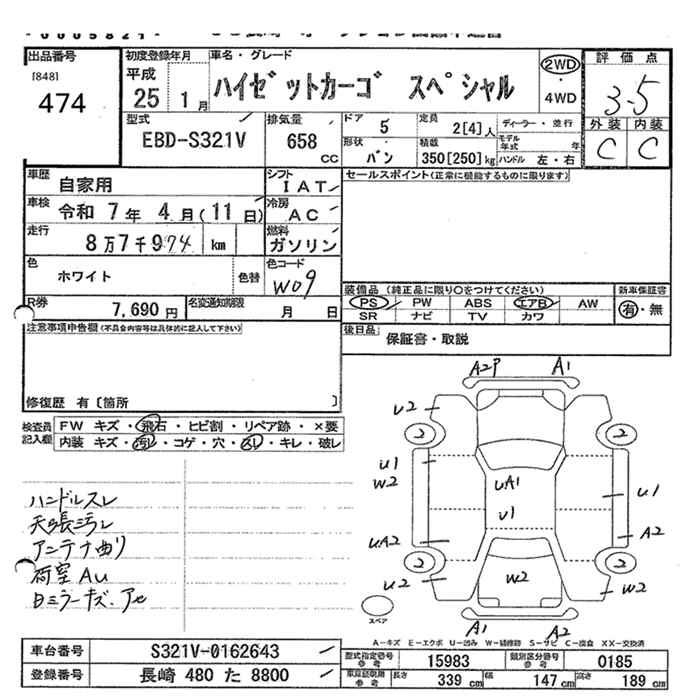 出品番号
[848]
474
初度登録年月
平成
25 1月
車名・グレード
ハイゼットカーゴ スペシャル
2WD
・
4WD
評価点
3-5
外装 内装
C C
型式
EBD-S321V
排気量
658
CC
ドア
5
定員
2[4]人
ディーラー・並行
モデル年式 年
形状
バン
積載
350[250]kg
ハンドル 左・右
車歴
自家用
シフト
IAT
セールスポイント(正常に機能するものに限ります)
車検
令和 7年 4月(11日)
冷房
AC
走行
8万7千974 km
燃料
ガソリン
色
ホワイト
色替
色コード
W09
装備品 (純正品に限り○をつけてください)
新車保証書
PS PW ABS エアB AW
有・無
SR ナビ TV カワ
R券
7,690円
名変通知期限
月 日
後日品
保証書・取説
注意事項申告欄(不具合内容等は具体的に記入して下さい)
修復歴 有〔箇所 〕
検査員
記入欄
FW キズ・飛石・ヒビ割・リペア跡・×要
内装 キズ・汚レ・コゲ・穴・スレ・キレ・破レ
ハンドルスレ
アンテナ曲り
荷室AU
A2P A1
U2
2 2
U1
W2
UA1
U1
U1
UA2
A2
2 2
U2
W2
W2
A1 A2
スペア
A-キズ E-エクボ U-凹み W-補修跡 S-サビ C-腐食 XX-交換済
車台番号
S321V-0162643
登録番号
長崎 480 た 8800
型式指定番号
参考
15983
類別区分番号
参考
0185
参考
長さ
339 cm
幅
147 cm
高さ
189 cm